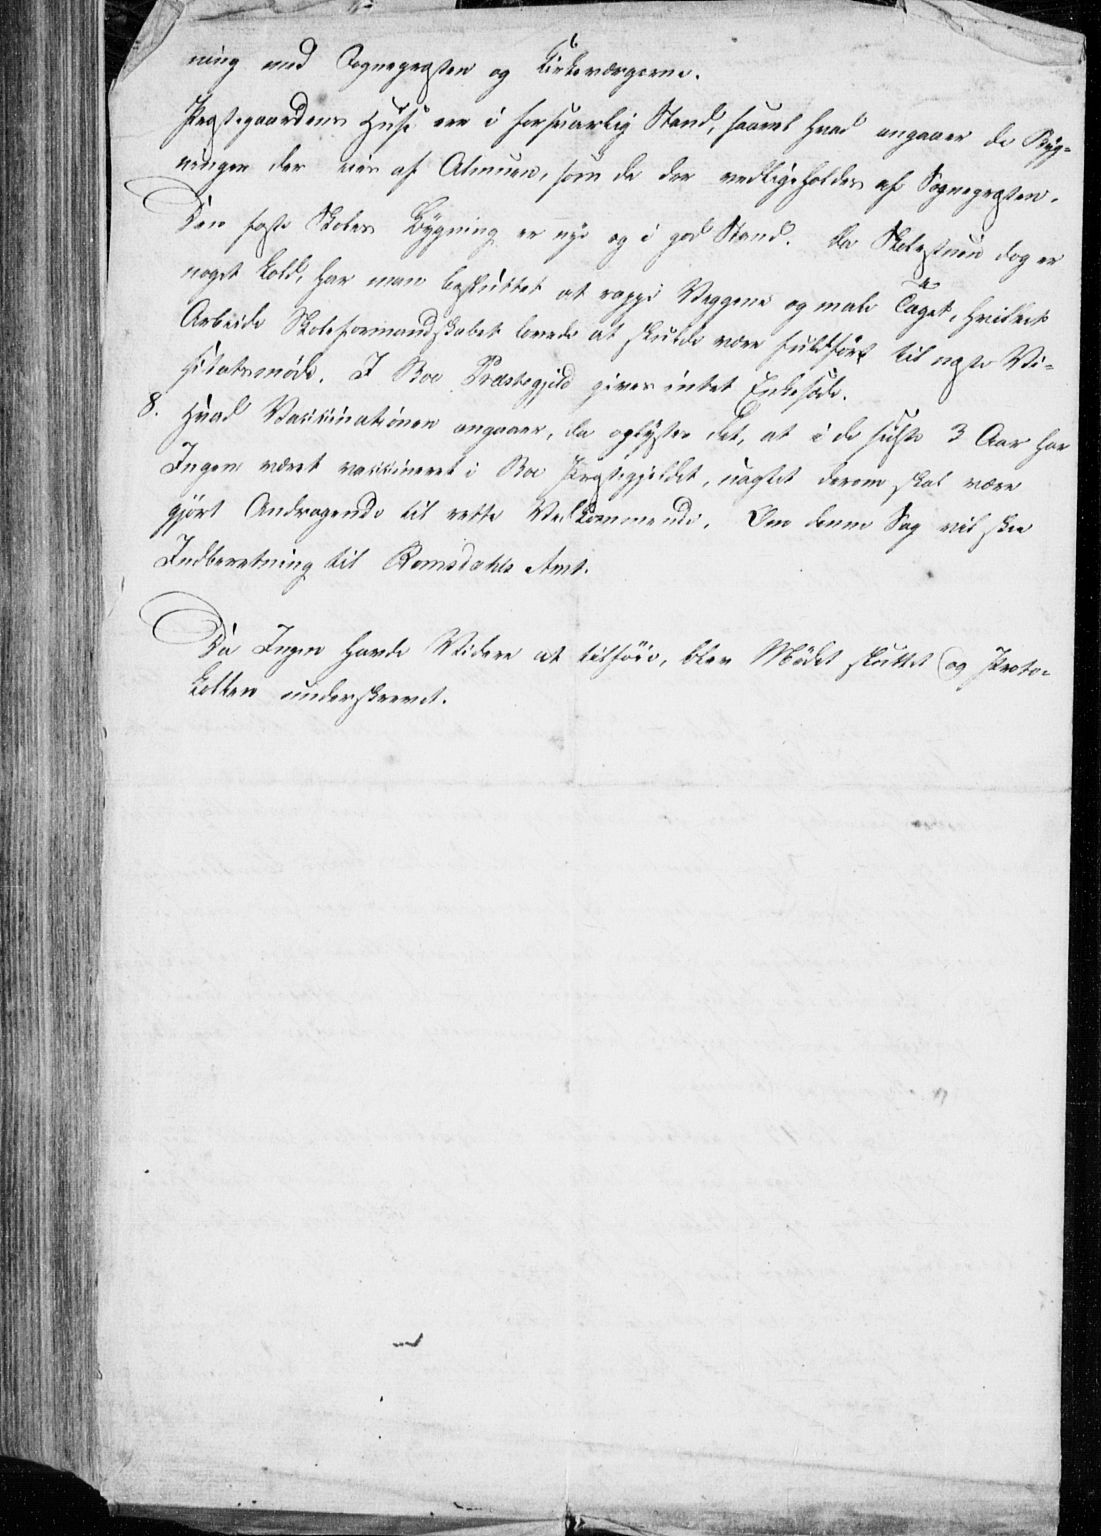 ning med Sognepresten og Kirkeværgerne.
Prestegaardens Huse ere i forsvarlig Stand, saavel hvad angaaer de Byg-
ninger der eies af Almuen, som de der vedligeholdes af Sognepresten.
Den faste Skoles Bygning er nye og i god Stand. Da Skolestuen dog er
noget kold, har man besluttet at rappe Veggene og male Taget, hvilket
Arbeide Skoleformandskabet lovede at skulde være fuldført til neste Vi-
sitatsmøde. I Boe Præstegjeld gives intet Enkesæde.
8. Hvad Vaccinationen angaaer, da oplystes det, at i de sidste 3 Aar har
Ingen været vaccineret i Boe Prestegjeldet, uagtet derom skal være
gjort Andragende til rette Vedkommende. Om denne Sag vil skee
Indberetning til Romsdahls Amt.
Da Ingen havde Videre at tilføie, blev Mødet sluttet og Proto-
kollen underskrevet.